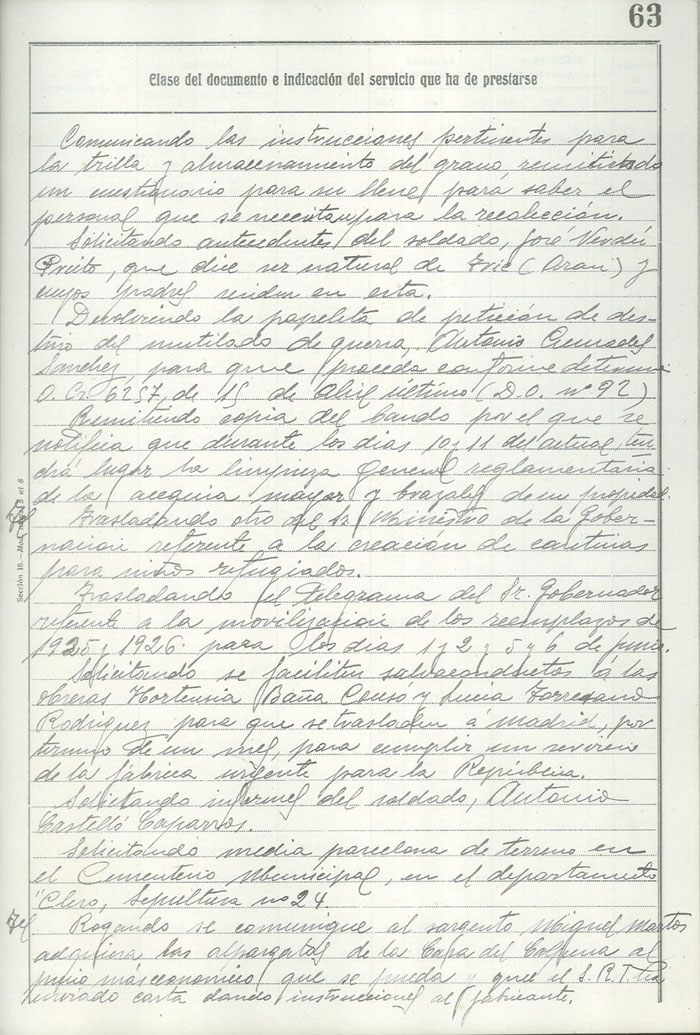 63
Clase del documento e indicación del servicio que ha de prestarse
Comunicando las instrucciones pertinentes para
la trilla y almacenamiento del grano, remitiendo
un cuestionario para su llene para saber el
personal que se necesitan para la recolección.
Solicitando antecedentes del soldado, José Verdú
Prieto, que dice ser natural de y
cuyos padres residen en esta.
Devolviendo la papeleta de petición de des-
tino del mutilado de guerra, Antonio Cremades
Sanchez, para que proceda conforme determina
O. Cr. 6257, de 15 de Abril último (D.O. nº 92)
Remitiendo copia del bando por el que se
notifica que durante los dias 10 y 11 del actual, ten-
drá lugar la limpieza general reglamentaria
de la acequia mayor y brazales de su propiedad.
Trasladando otro del Sr. Ministro de la Gober-
nacion referente a la creación de cantinas
para niños refugiados.
Trasladando el Telegrama del Sr. Gobernador
referente a la movilizacion de los reemplazos de
1925 y 1926 para los dias 1 y 2 y 5 y 6 de junio.
Solicitando se faciliten salvoconductos á las
obreras Hortensia Baña Cousó y Lucia
Rodriguez para que se trasladen á Madrid, por
termino de un mes, para cumplir un servicio
de la fábrica urgente para la República.
Solicitando informes del soldado, Antonio
Castelló Caparros.
Solicitando media parcelona de terreno en
el Cementerio Municipal, en el departamento
Clero, Sepultura nº 24.
Tel. Rogando se comunique al sargento Miguel Martos
adquiera las alpargatas de la Casa del al
precio más económico que se pueda y que el S.R.T. ha
enviado carta dando instrucciones al fabricante.
Sección 18.—Mod.